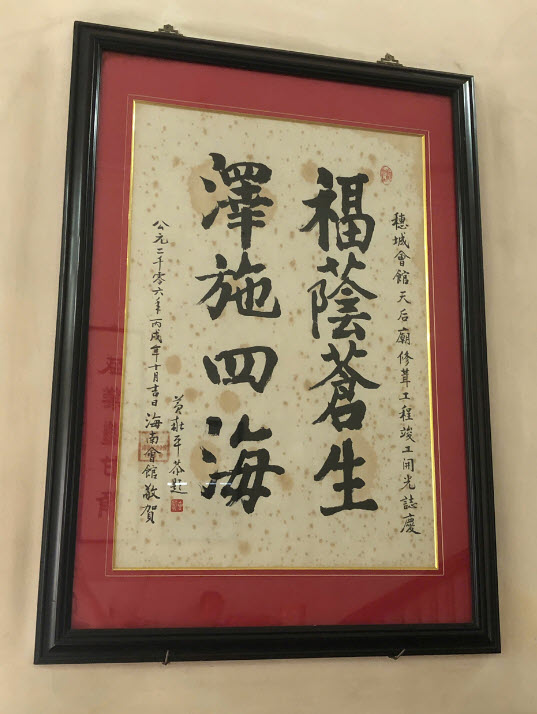 穗城會館天后廟修葺工程竣工開光誌慶
福蔭蒼生
澤施四海
公元二千零六年丙戌年十月吉日海南會館敬賀
莊平恭題